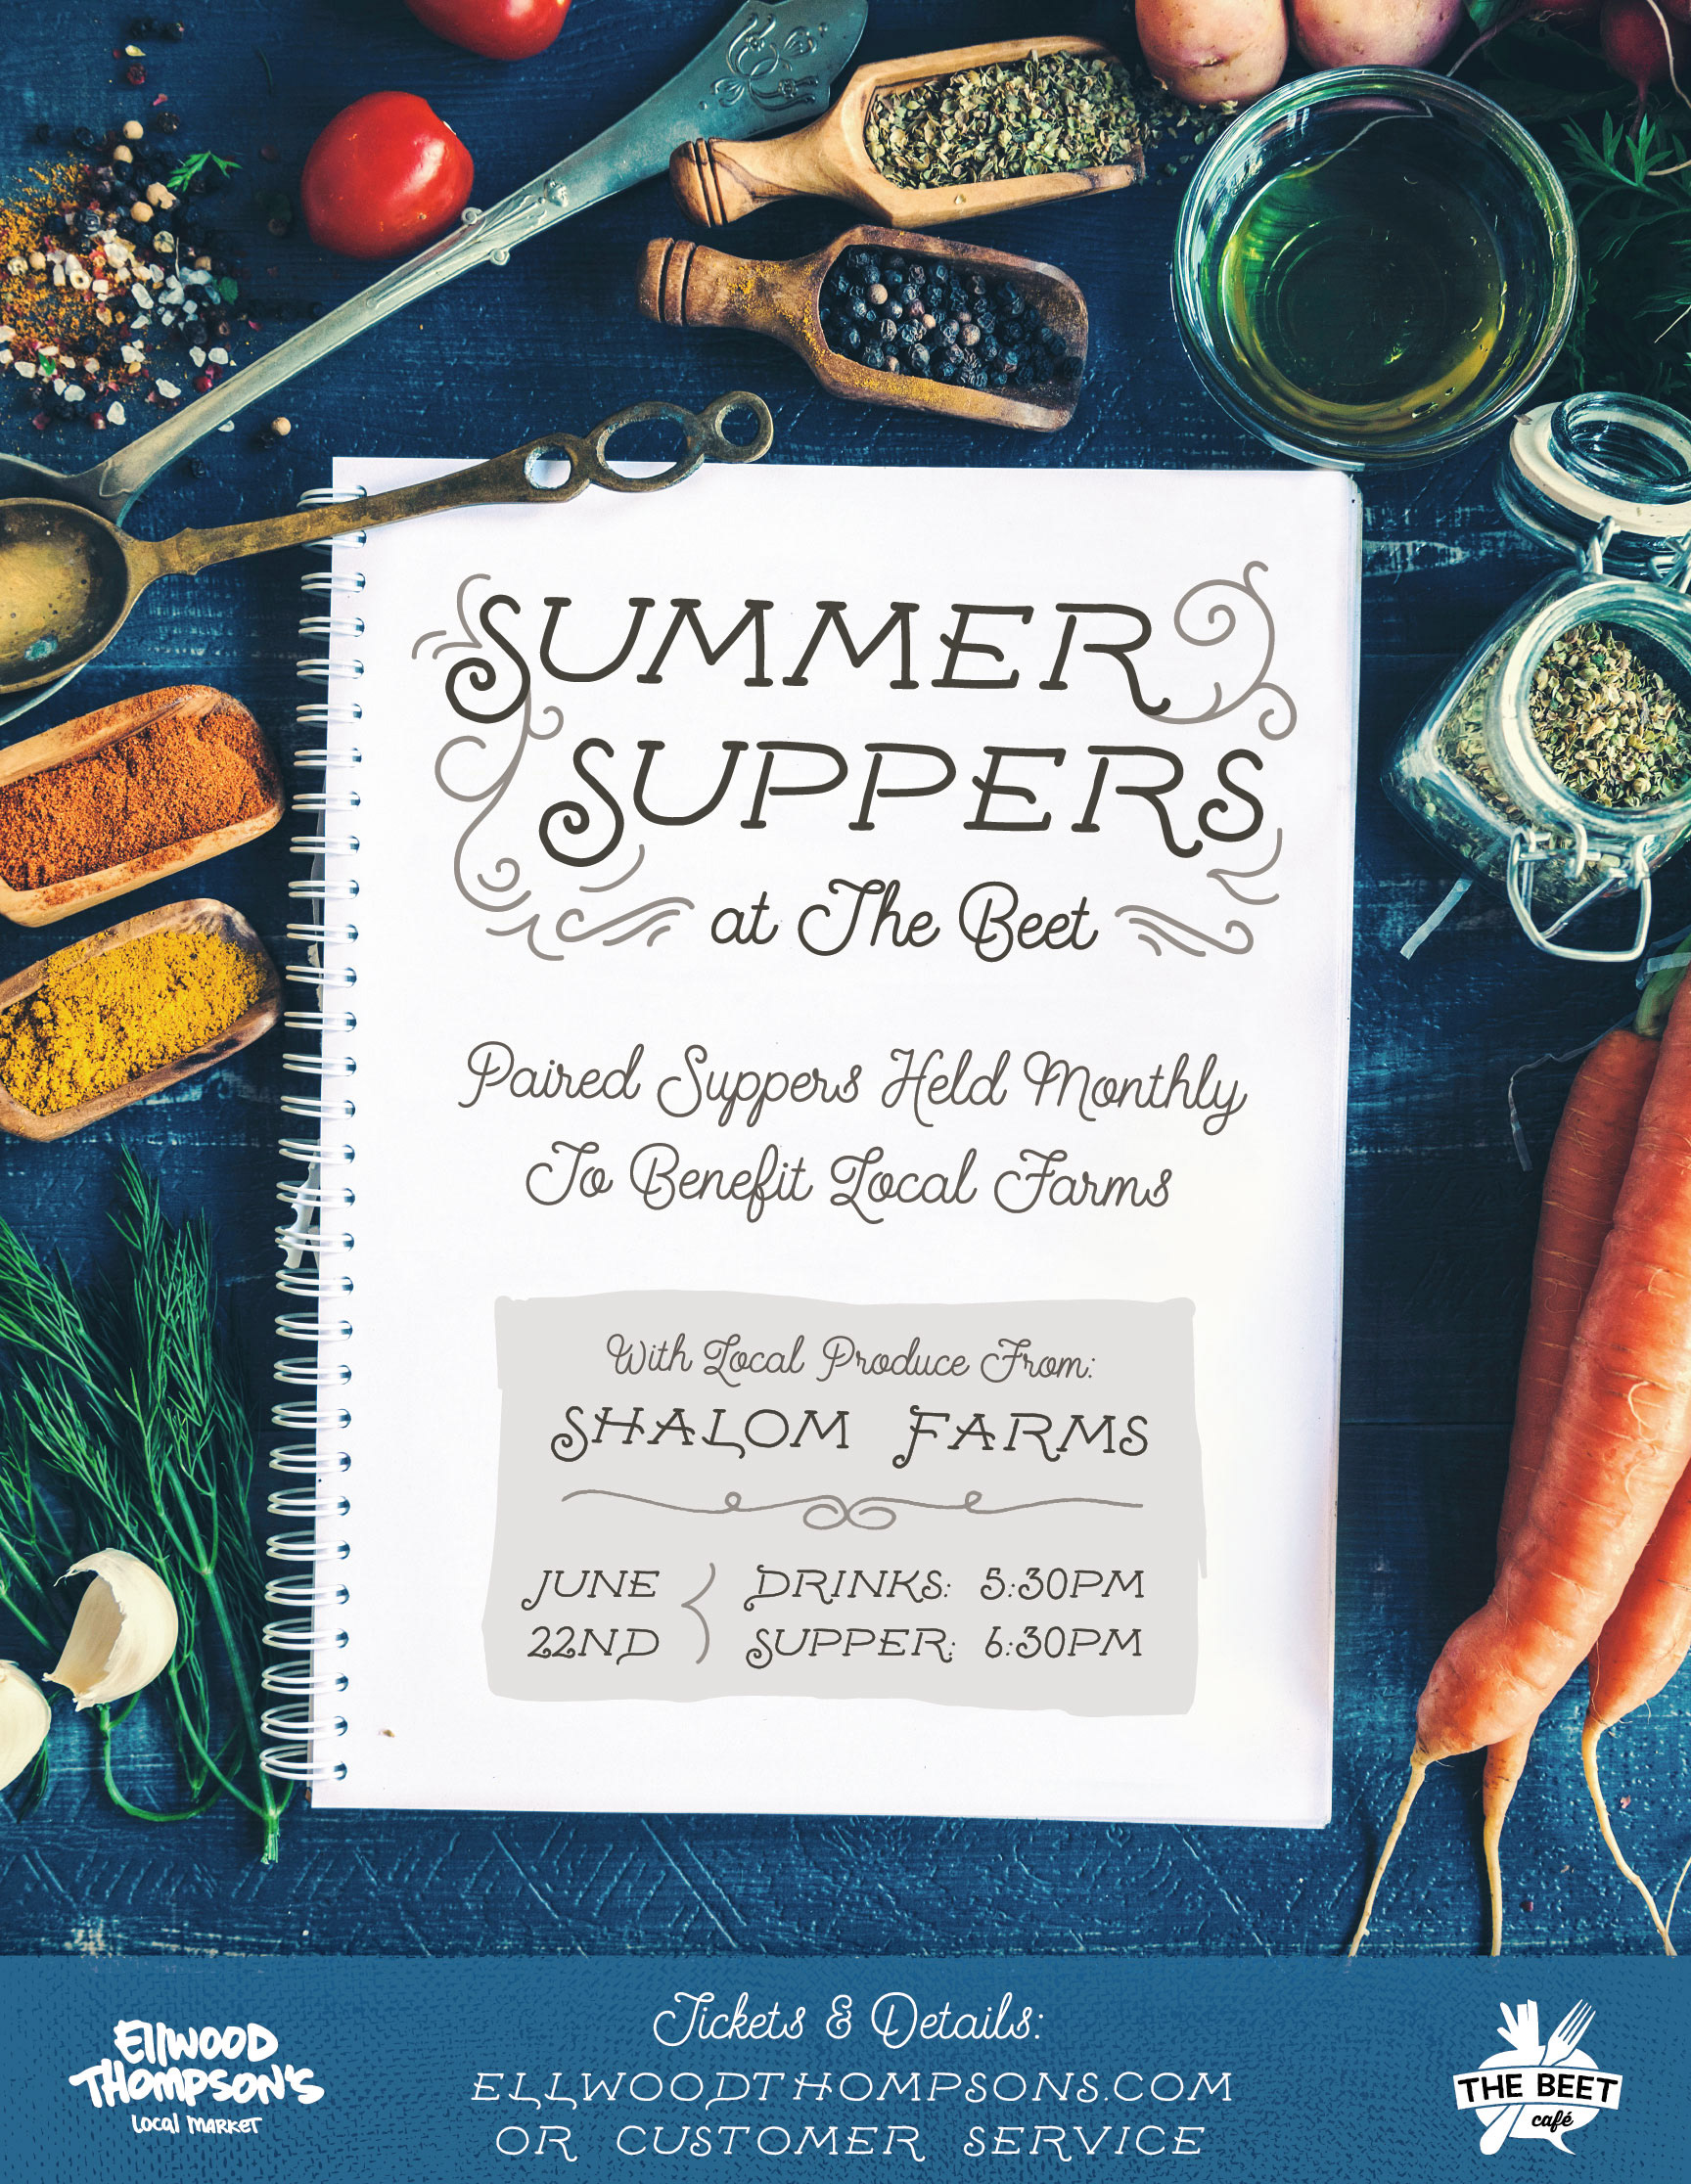 SUMMER
SUPPERS
at The Beet
Paired Suppers Held Monthly
To Benefit Local Farms
With Local Produce From:
SHALOM FARMS
JUNE
22ND
DRINKS: 5:30PM
SUPPER: 6:30PM
Tickets & Details:
ELLWOODTHOMPSONS.COM
OR CUSTOMER SERVICE
Ellwood
Thompson's
Local Market
THE BEET
café